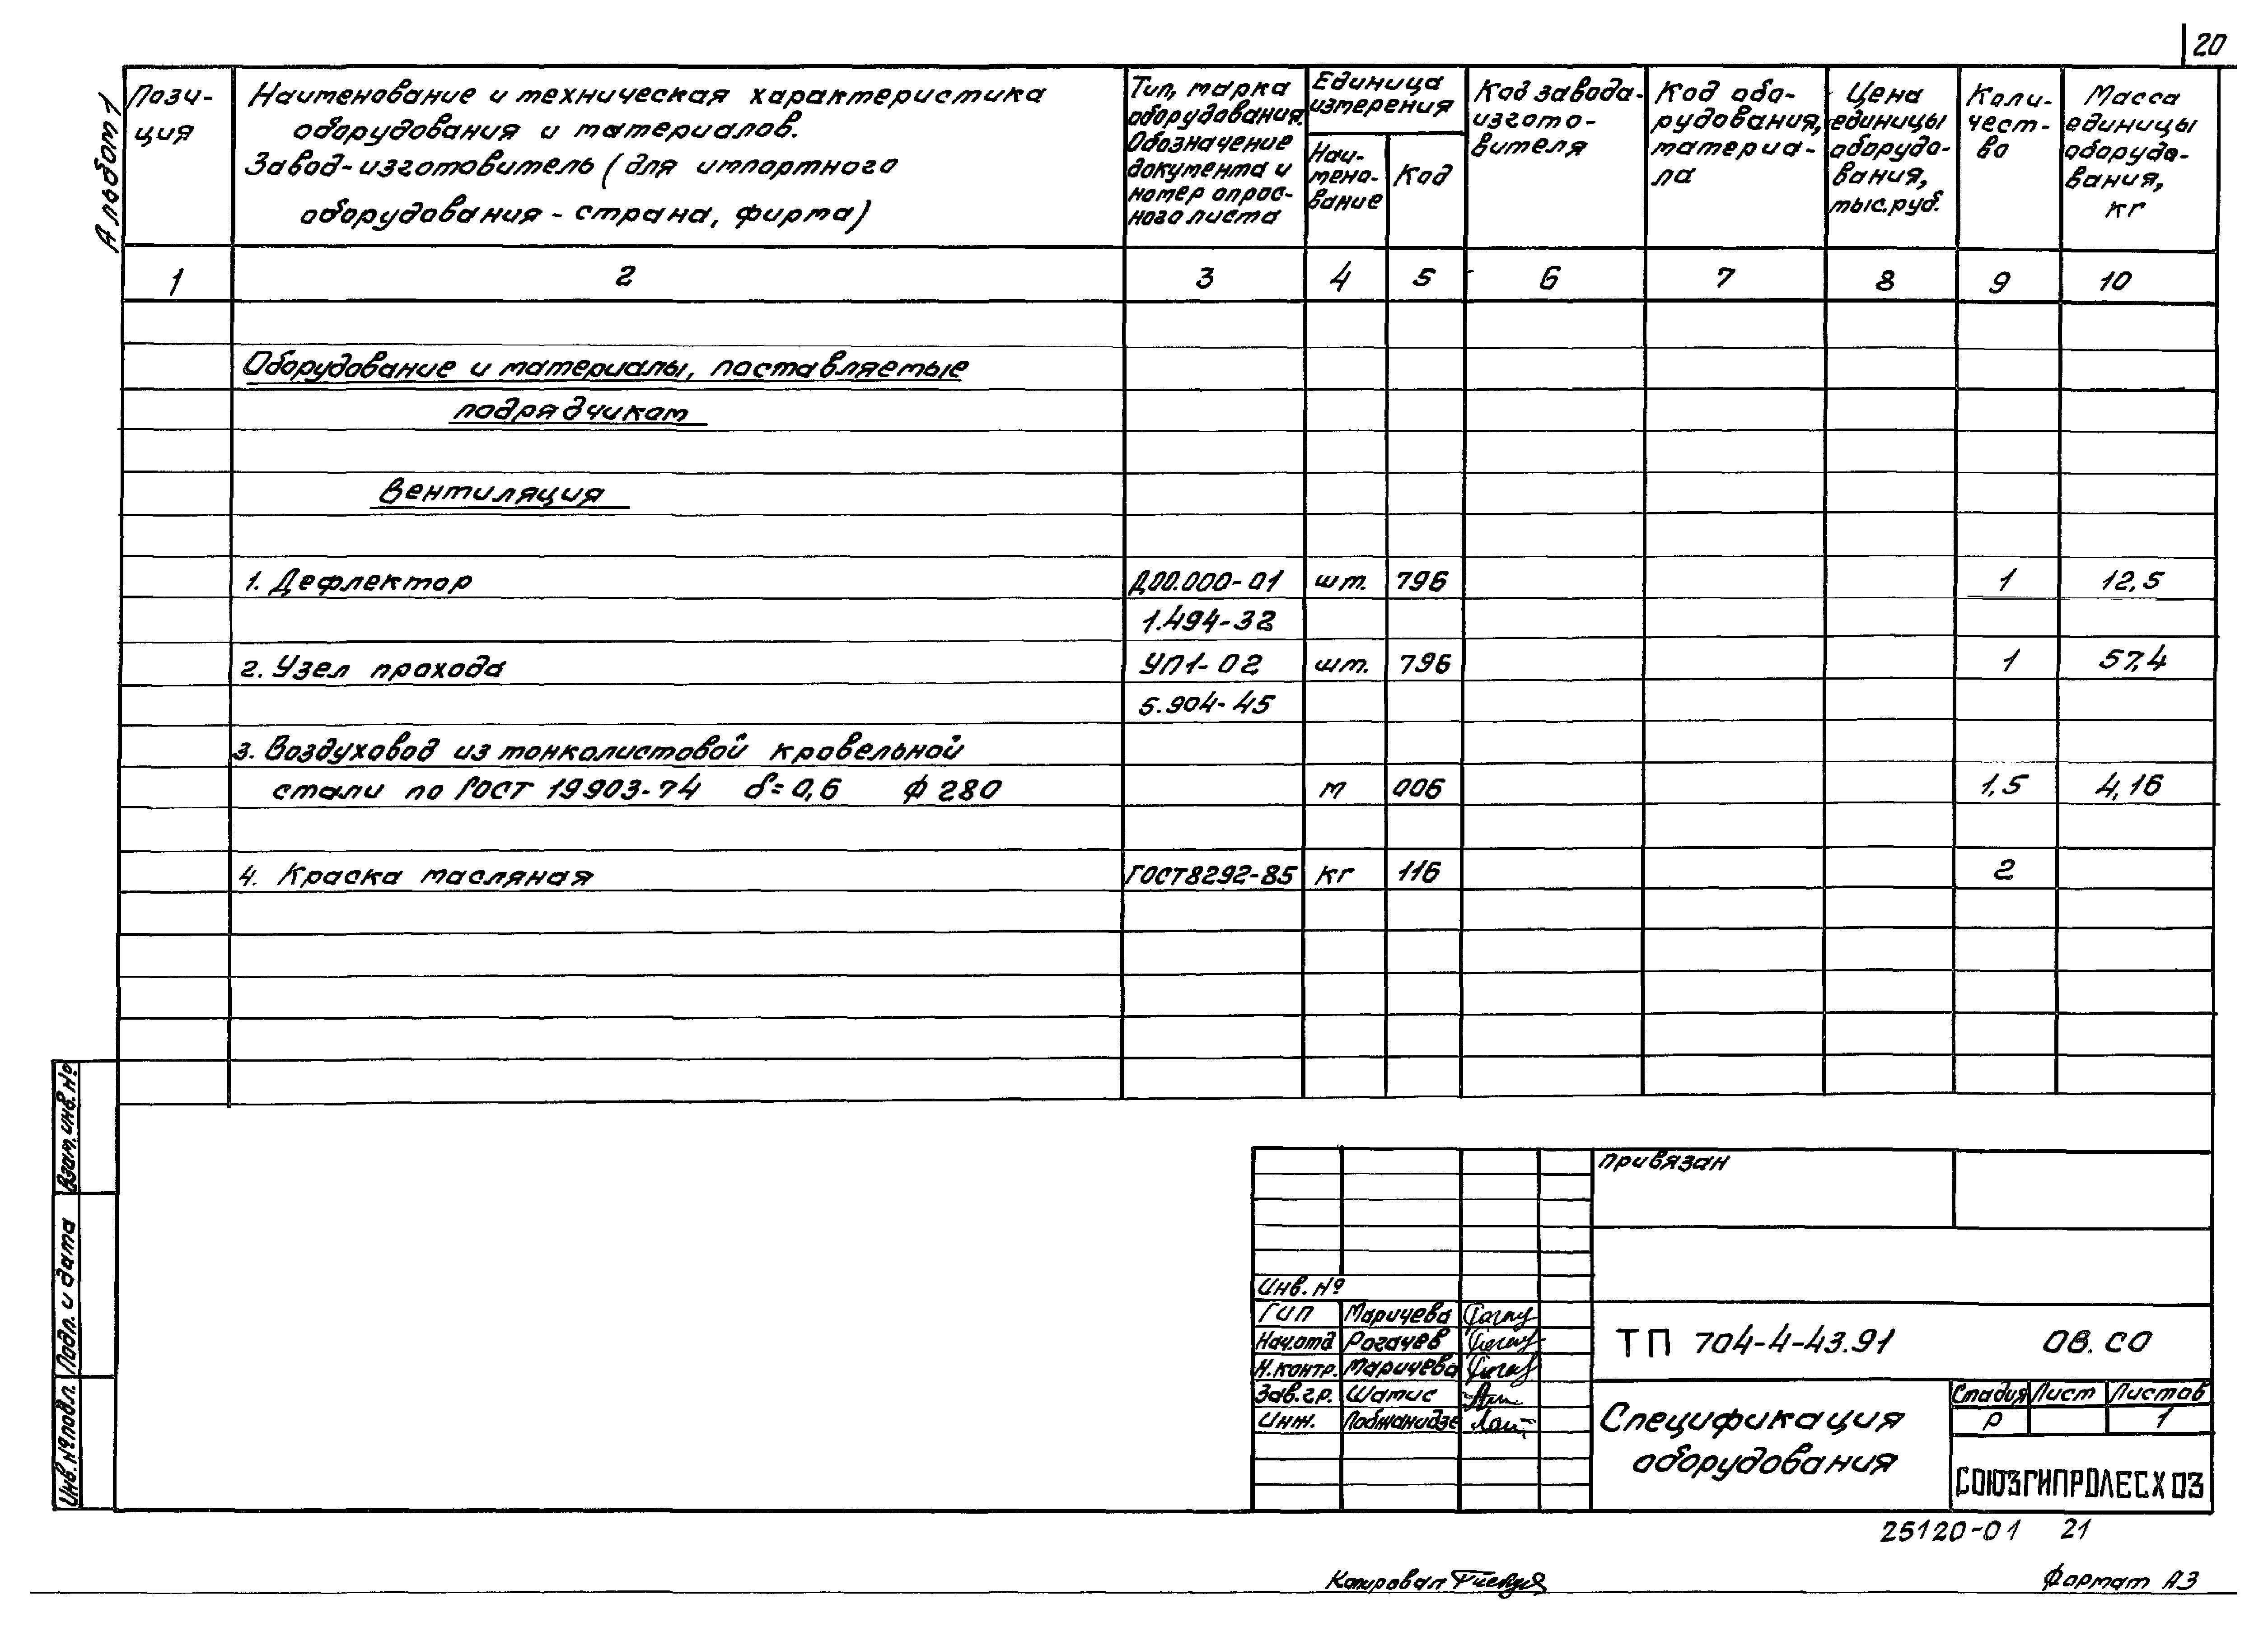 20
Альбом 1
Пози-
ция
Наименование и техническая характеристика
оборудования и материалов.
Завод-изготовитель (для импортного
оборудования - страна, фирма)
Тип, марка
оборудования.
Обозначение
документа и
номер опрос-
ного листа
Единица
измерения
Наи-
мено-
вание
Код
Код завода-
изгото-
вителя
Код обо-
рудования,
материа-
ла
Цена
единицы
оборудо-
вания,
тыс.руб.
Коли-
чест-
во
Масса
единицы
оборудо-
вания,
кг
1 2 3 4 5 6 7 8 9 10
Оборудование и материалы, поставляемые
подрядчиком
Вентиляция
1. Дефлектор Д00.000-01 шт. 796 1 12,5
1.494-32
2. Узел прохода УП1-02 шт. 796 1 57,4
5.904-45
3. Воздуховод из тонколистовой кровельной
стали по ГОСТ 19903-74 δ=0,6 ф 280 м 006 1,5 4,16
4. Краска масляная ГОСТ8292-85 кг 116 2
Взам. инв. №
Подп. и дата
Инв. № подл.
Привязан
Инв. №
ГИП Маричева
Нач.отд Рогачев
Н.контр. Маричева
Зав.гр. Шатис
Инж. Лобжанидзе
ТП 704-4-43.91 ОВ.СО
Спецификация
оборудования
Стадия Лист Листов
Р 1
СОЮЗГИПРОЛЕСХОЗ
25120-01 21
Копировал
Формат А3